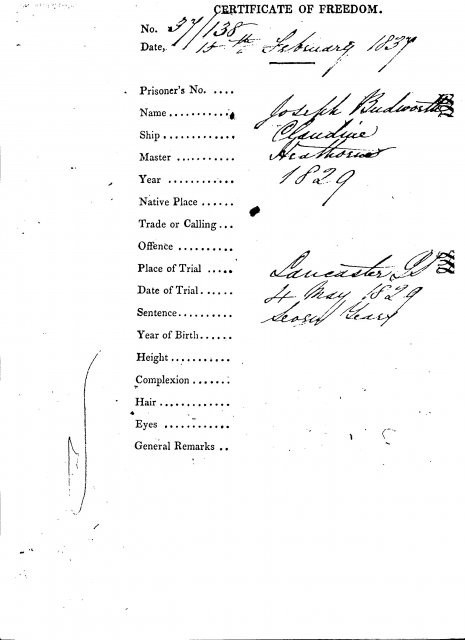 CERTIFICATE OF FREEDOM.
No. 37/138
Date, 15th February 1837
Prisoner's No. ....
Name........... Joseph Budworth
Ship............. Claudine
Master ........... Heathorn
Year ............ 1829
Native Place ......
Trade or Calling...
Offence ..........
Place of Trial ..... Lancaster QS
Date of Trial...... 4 May 1829
Sentence.......... Seven Years
Year of Birth......
Height...........
Complexion .......
Hair .............
Eyes ............
General Remarks ..